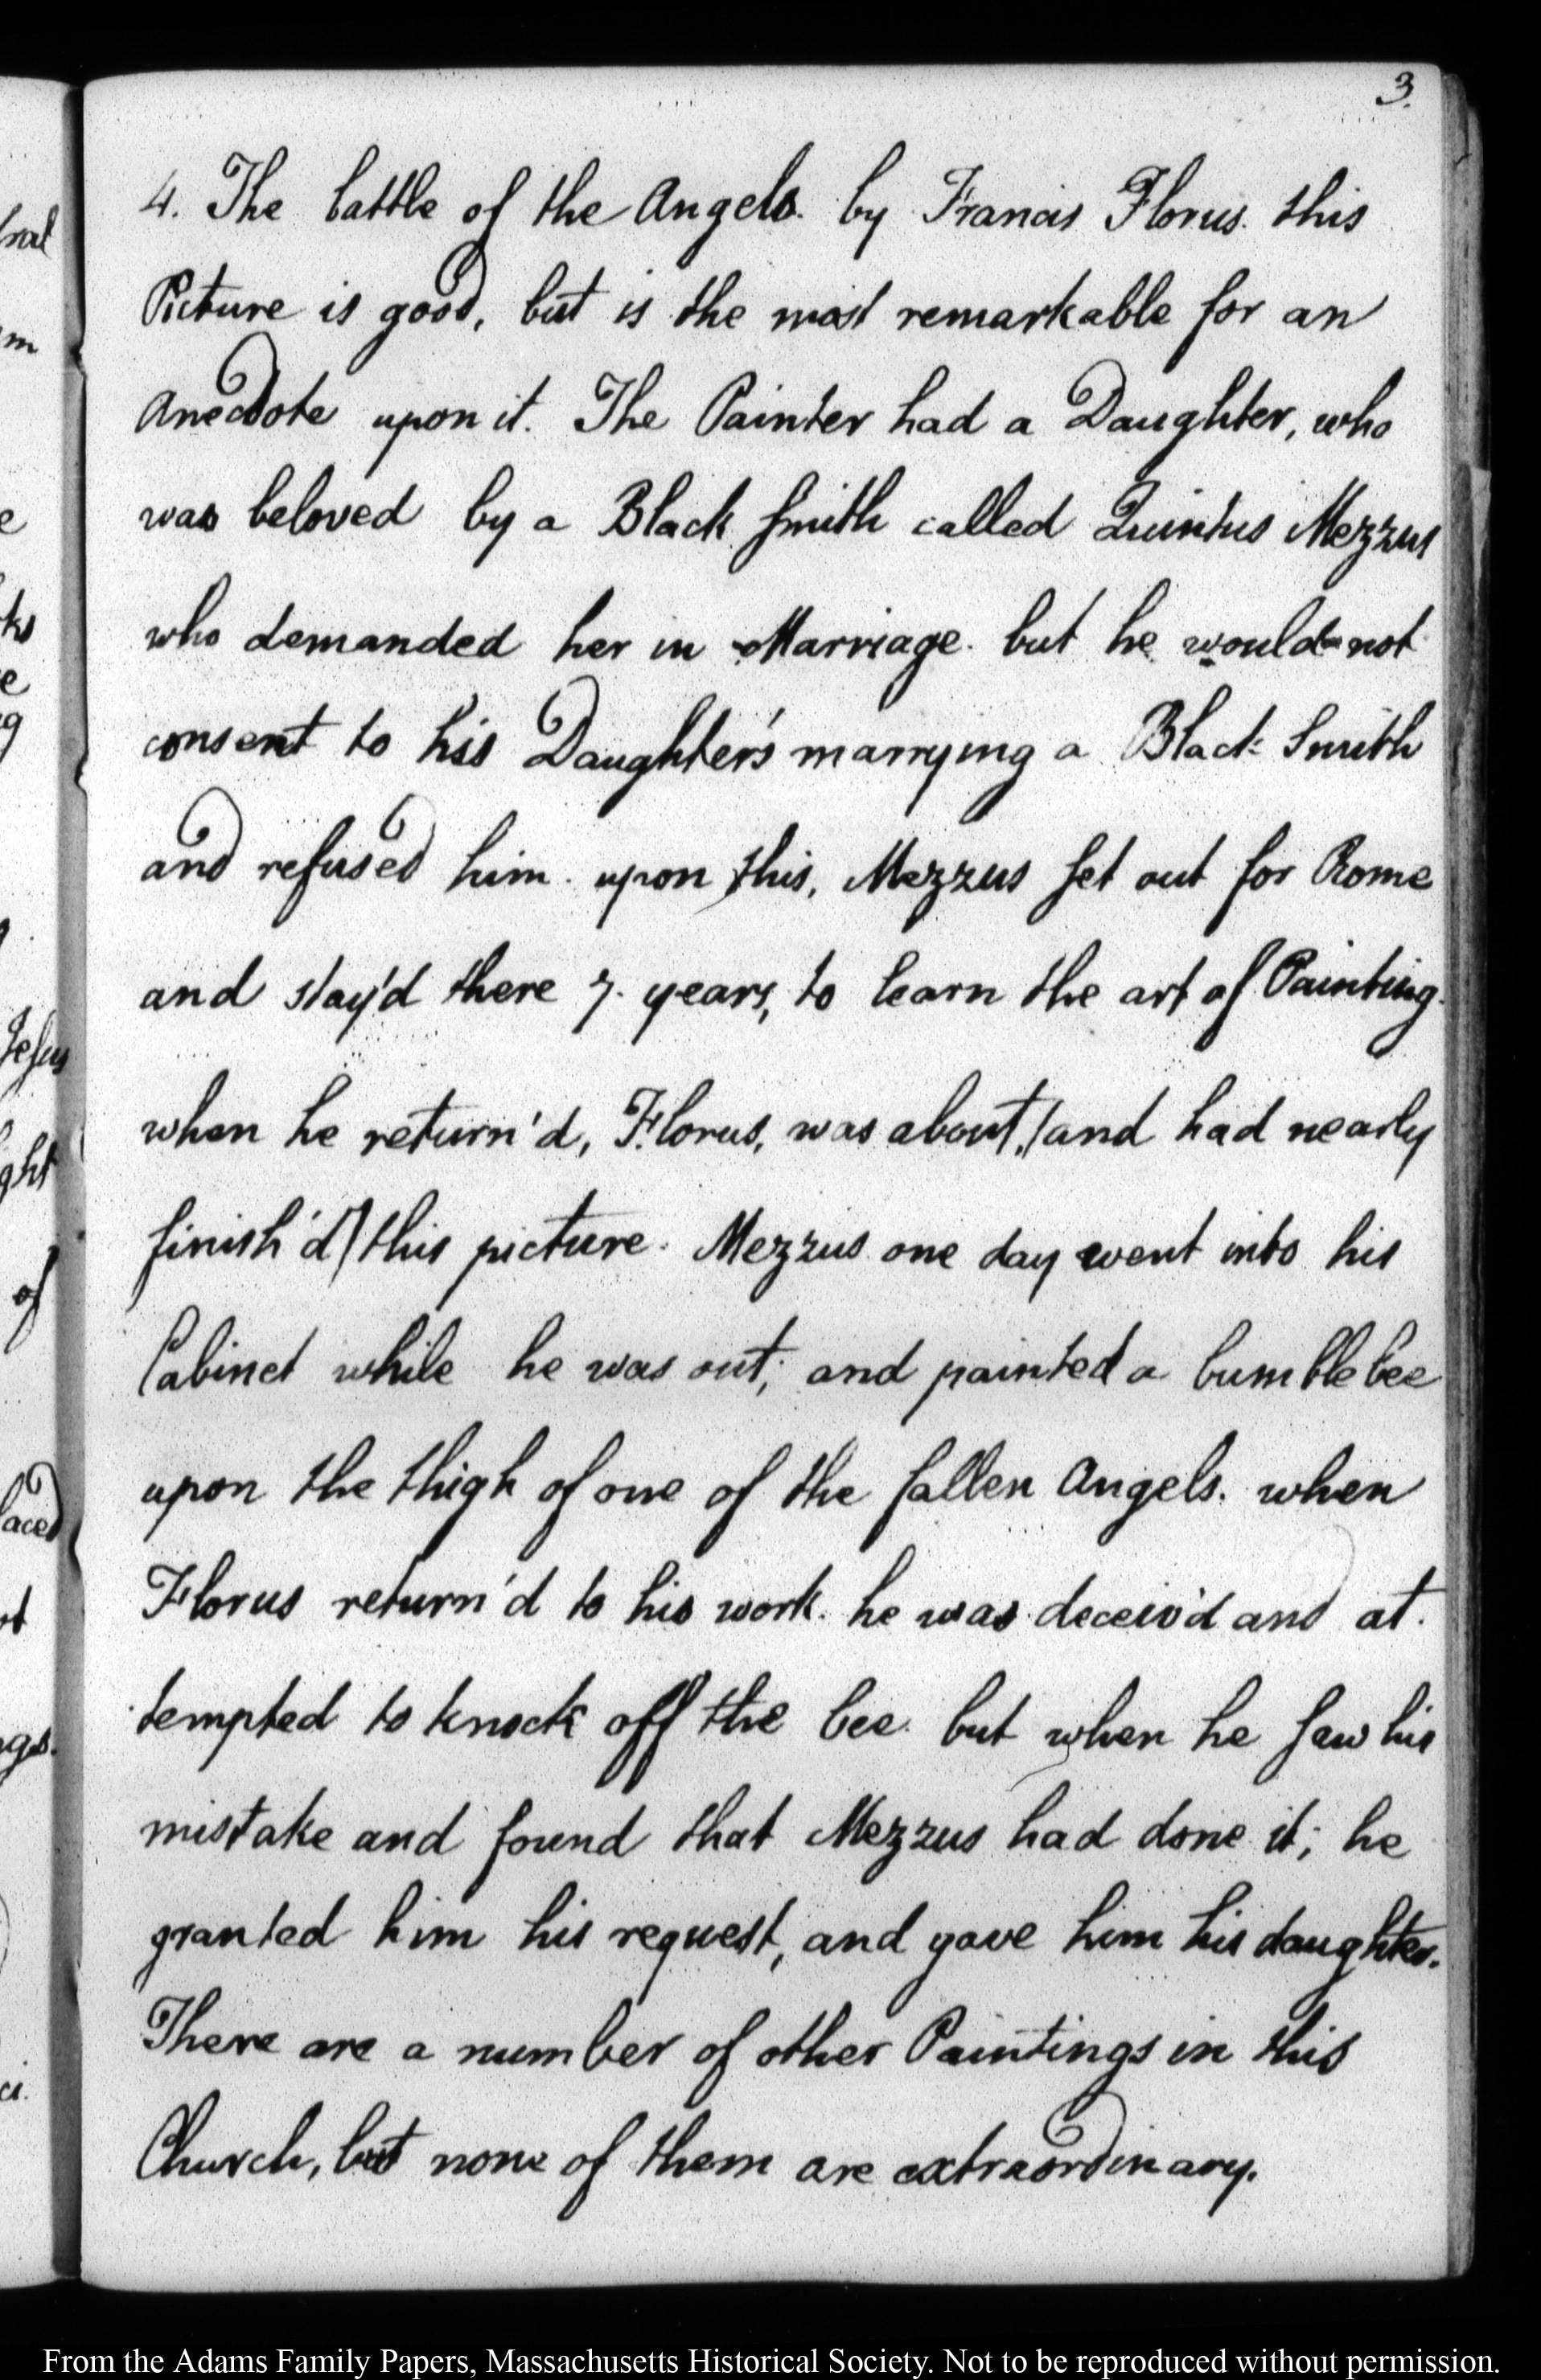 3.
4. The battle of the Angels. by Francis Florus. this
Picture is good, but is the most remarkable for an
Anecdote upon it. The Painter had a Daughter, who
was beloved by a Black Smith called Quintus Mezzus
who demanded her in Marriage. but he would not
consent to his Daughter's marrying a Black Smith
and refused him. upon this, Mezzus set out for Rome
and stay'd there 7. years, to learn the art of Painting.
when he return'd, Florus, was about, (and had nearly
finish'd) this picture. Mezzus one day went into his
Cabinet while he was out; and painted a bumble bee
upon the thigh of one of the fallen Angels. when
Florus return'd to his work. he was deceiv'd and at.
tempted to knock off the bee. but when he saw his
mistake and found that Mezzus had done it; he
granted him his request, and gave him his daughter.
There are a number of other Paintings in this
Church, but none of them are extraordinary.
From the Adams Family Papers, Massachusetts Historical Society. Not to be reproduced without permission.